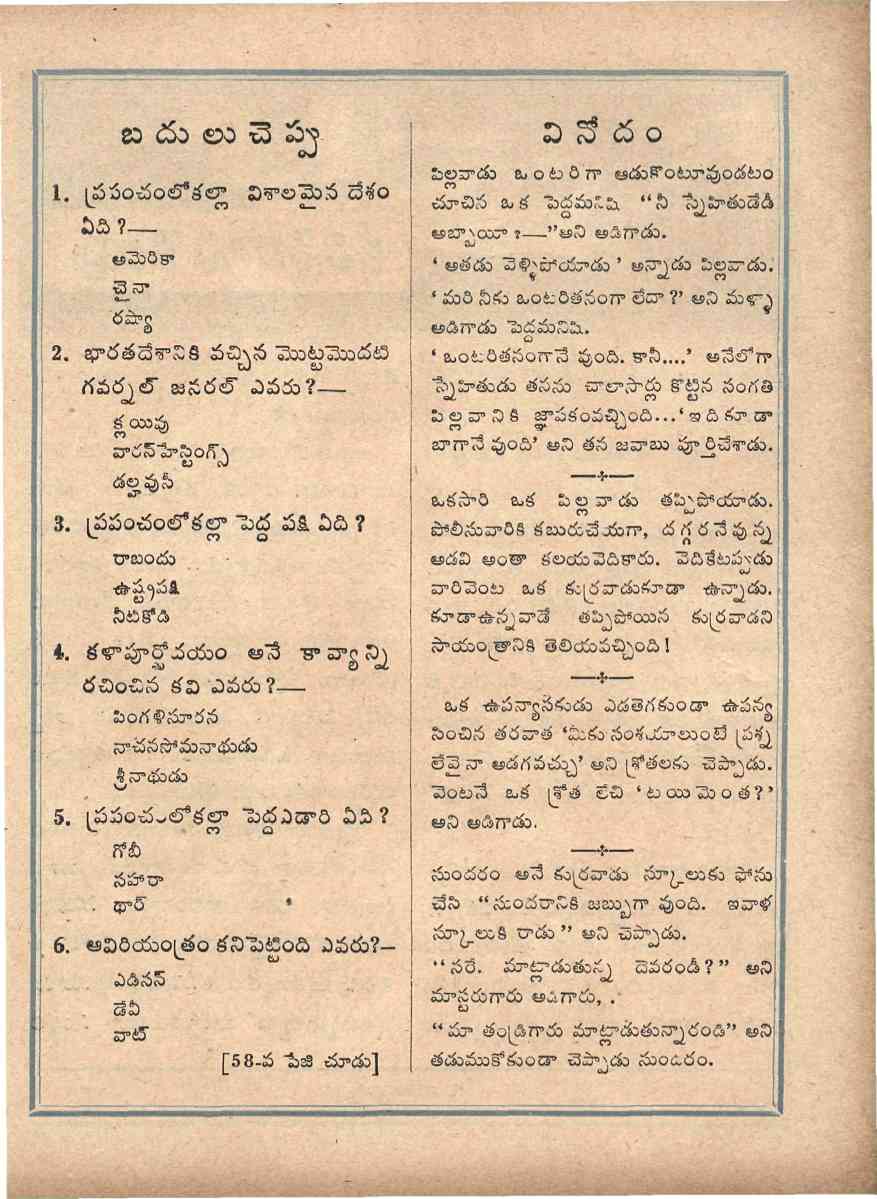 బదులుచెప్పు
1. ప్రపంచంలోకల్లా విశాలమైన దేశం
ఏది?—
అమెరికా
చైనా
రష్యా
2. భారతదేశానికి వచ్చిన మొట్టమొదటి
గవర్నల్ జనరల్ ఎవరు?—
క్లయివు
వారన్‌హేస్టింగ్స్
డల్హవుసీ
3. ప్రపంచంలోకల్లా పెద్ద పక్షి ఏది?
రాబందు
ఉష్ట్రపక్షి
నీటికోడి
4. కళాపూర్ణోదయం అనే కావ్యాన్ని
రచించిన కవి ఎవరు?—
పింగళిసూరన
నాచనసోమనాథుడు
శ్రీనాథుడు
5. ప్రపంచంలోకల్లా పెద్దఎడారి ఏది?
గోబీ
సహారా
థార్
6. ఆవిరియంత్రం కనిపెట్టింది ఎవరు?—
ఎడిసన్
డేవీ
వాట్
[58-వ పేజి చూడు]
వినోదం
పిల్లవాడు ఒంటరిగా ఆడుకొంటూవుండటం
చూచిన ఒక పెద్దమనిషి “నీ స్నేహితుడేడీ
అబ్బాయీ?—”అని అడిగాడు.
‘అతడు వెళ్ళిపోయాడు’ అన్నాడు పిల్లవాడు.
‘మరి నీకు ఒంటరితనంగా లేదా?’ అని మళ్ళా
అడిగాడు పెద్దమనిషి.
‘ఒంటరితనంగానే వుంది. కానీ....’ అనేలోగా
స్నేహితుడు తనను చాలాసార్లు కొట్టిన సంగతి
పిల్లవానికి జ్ఞాపకంవచ్చింది...‘ఇదికూడా
బాగానేవుంది’ అని తన జవాబు పూర్తిచేశాడు.
ఒకసారి ఒక పిల్లవాడు తప్పిపోయాడు.
పోలీసువారికి కబురుచేయగా, దగ్గరనేవున్న
అడవి అంతా కలయవెదికారు. వెదికేటప్పుడు
వారివెంట ఒక కుర్రవాడుకూడా ఉన్నాడు.
కూడాఉన్నవాడే తప్పిపోయిన కుర్రవాడని
సాయంత్రానికి తెలియవచ్చింది!
ఒక ఉపన్యాసకుడు ఎడతెగకుండా ఉపన్య
సించిన తరవాత ‘మీకు సంశయాలుంటే ప్రశ్న
లేవైనా అడగవచ్చు’ అని శ్రోతలకు చెప్పాడు.
వెంటనే ఒక శ్రోత లేచి ‘టయిమెంత?’
అని అడిగాడు.
సుందరం అనే కుర్రవాడు స్కూలుకు ఫోను
చేసి “సుందరానికి జబ్బుగా వుంది. ఇవాళ
స్కూలుకి రాడు” అని చెప్పాడు.
“సరే. మాట్లాడుతున్న దెవరండీ?” అని
మాస్టరుగారు అడిగారు,.
“మా తండ్రిగారు మాట్లాడుతున్నారండి” అని
తడుముకోకుండా చెప్పాడు సుందరం.